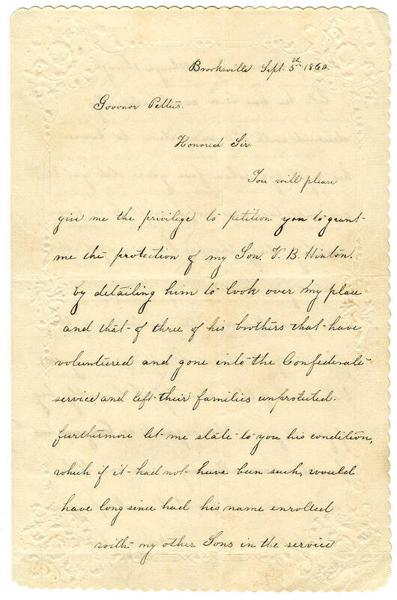 Brooksville Sept. 5th 1862.
Govonor Pettus.
Honored Sir.
You will please
give me the privilege to petition you to grant
me the protection of my Son, V. B. Hinton.
by detailing him to look over my place
and that of three of his brothers that have
volunteured and gone into the Confederate
service and left their families unprotected.
furthermore let me state to you his condition,
which if it had not have been such, would
have long since had his name enrolled
with my other Sons in the service